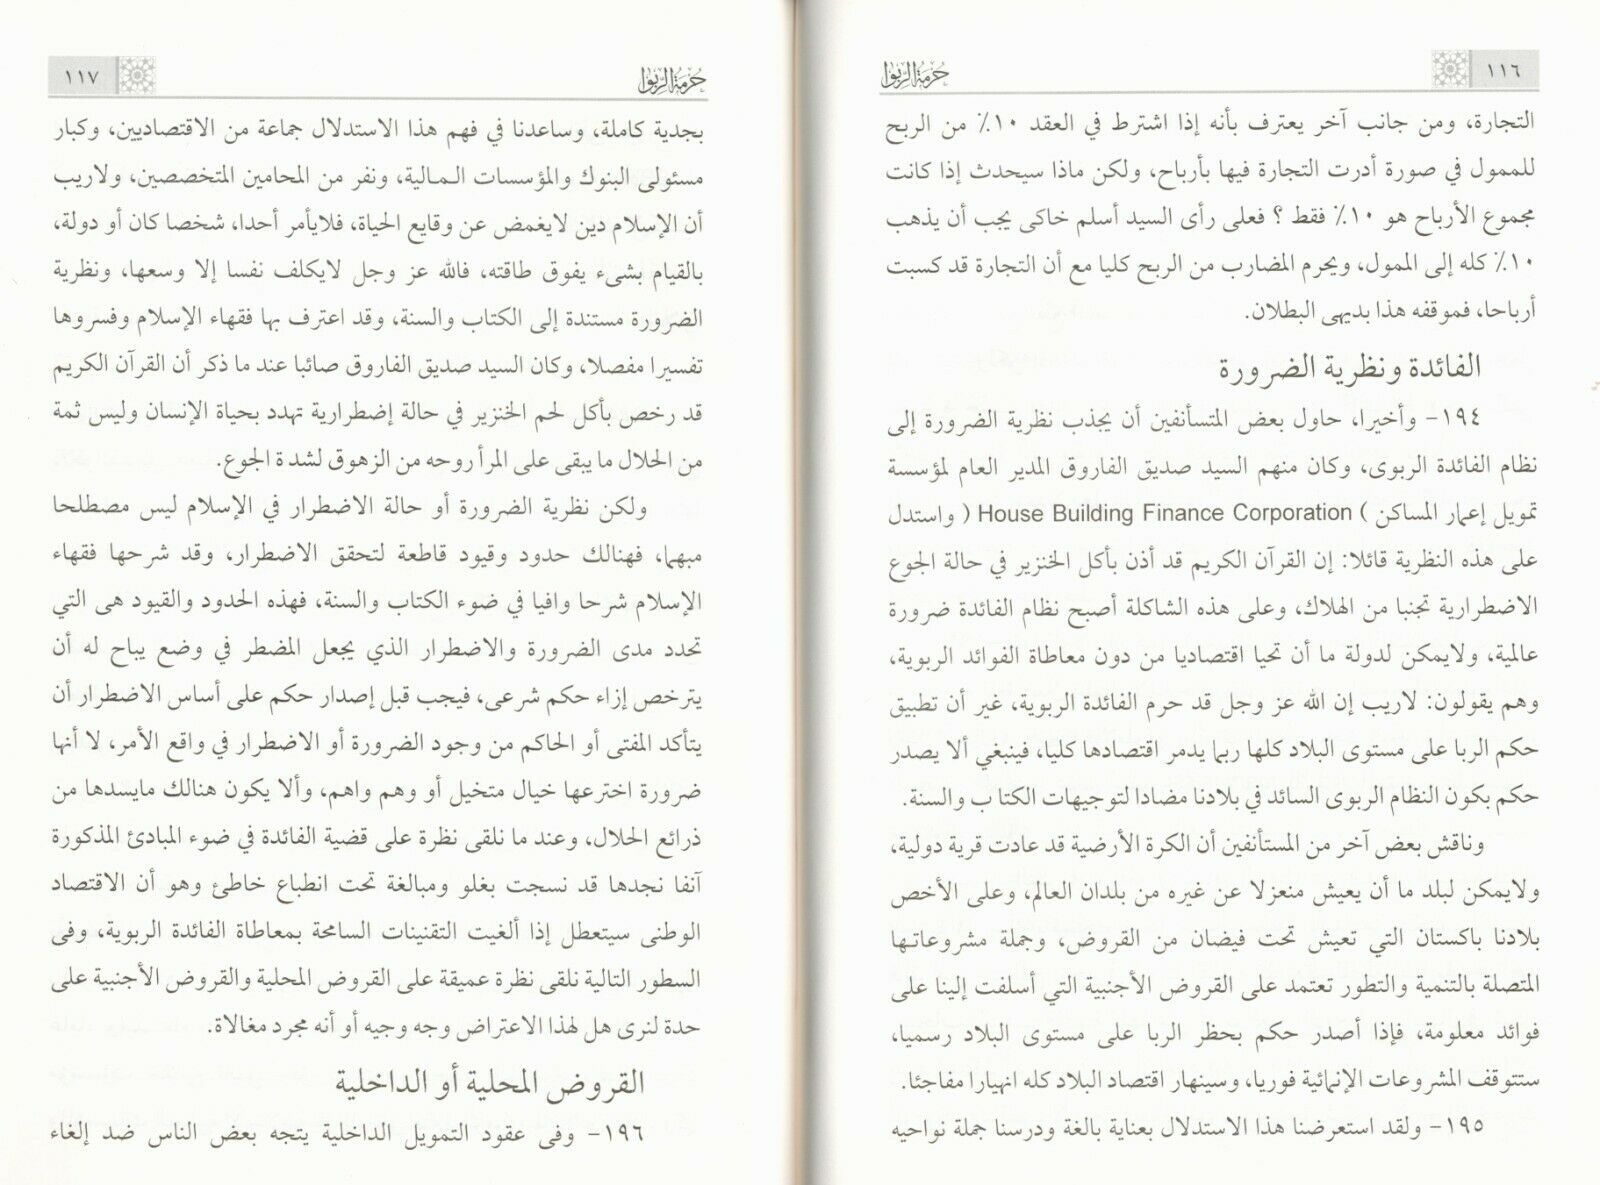 ١١٦
حُرمَةُ الرِّبوا
التجارة، ومن جانب آخر يعترف بأنه إذا اشترط في العقد ١٠٪ من الربح
للممول في صورة أدرت التجارة فيها بأرباح، ولكن ماذا سيحدث إذا كانت
مجموع الأرباح هو ١٠٪ فقط ؟ فعلى رأى السيد أسلم خاكى يجب أن يذهب
١٠٪ كله إلى الممول، ويحرم المضارب من الربح كليا مع أن التجارة قد كسبت
أرباحا، فموقفه هذا بديهى البطلان.
الفائدة ونظرية الضرورة
١٩٤- وأخيرا، حاول بعض المتسأنفين أن يجذب نظرية الضرورة إلى
نظام الفائدة الربوى، وكان منهم السيد صديق الفاروق المدير العام لمؤسسة
تمويل إعمار المساكن ( House Building Finance Corporation ) واستدل
على هذه النظرية قائلا: إن القرآن الكريم قد أذن بأكل الخنزير في حالة الجوع
الاضطرارية تجنبا من الهلاك، وعلى هذه الشاكلة أصبح نظام الفائدة ضرورة
عالمية، ولايمكن لدولة ما أن تحيا اقتصاديا من دون معاطاة الفوائد الربوية،
وهم يقولون: لاريب إن الله عز وجل قد حرم الفائدة الربوية، غير أن تطبيق
حكم الربا على مستوى البلاد كلها ربما يدمر اقتصادها كليا، فينبغي ألا يصدر
حكم بكون النظام الربوى السائد في بلادنا مضادا لتوجيهات الكتا ب والسنة.
وناقش بعض آخر من المستأنفين أن الكرة الأرضية قد عادت قرية دولية،
ولايمكن لبلد ما أن يعيش منعزلا عن غيره من بلدان العالم، وعلى الأخص
بلادنا باكستان التي تعيش تحت فيضان من القروض، وجملة مشروعاتها
المتصلة بالتنمية والتطور تعتمد على القروض الأجنبية التي أسلفت إلينا على
فوائد معلومة، فإذا أصدر حكم بحظر الربا على مستوى البلاد رسميا،
ستتوقف المشروعات الإنمائية فوريا، وسينهار اقتصاد البلاد كله انهيارا مفاجئا.
١٩٥- ولقد استعرضنا هذا الاستدلال بعناية بالغة ودرسنا جملة نواحيه
١١٧
حُرمَةُ الرِّبوا
بجدية كاملة، وساعدنا في فهم هذا الاستدلال جماعة من الاقتصاديين، وكبار
مسئولى البنوك والمؤسسات الـمـالية، ونفر من المحامين المتخصصين، ولاريب
أن الإسلام دين لايغمض عن وقايع الحياة، فلايأمر أحدا، شخصا كان أو دولة،
بالقيام بشىء يفوق طاقته، فالله عز وجل لايكلف نفسا إلا وسعها، ونظرية
الضرورة مستندة إلى الكتاب والسنة، وقد اعترف بها فقهاء الإسلام وفسروها
تفسيرا مفصلا، وكان السيد صديق الفاروق صائبا عند ما ذكر أن القرآن الكريم
قد رخص بأكل لحم الخنزير في حالة إضطرارية تهدد بحياة الإنسان وليس ثمة
من الحلال ما يبقى على المرأ روحه من الزهوق لشدة الجوع.
ولكن نظرية الضرورة أو حالة الاضطرار في الإسلام ليس مصطلحا
مبهما، فهنالك حدود وقيود قاطعة لتحقق الاضطرار، وقد شرحها فقهاء
الإسلام شرحا وافيا في ضوء الكتاب والسنة، فهذه الحدود والقيود هى التي
تحدد مدى الضرورة والاضطرار الذي يجعل المضطر في وضع يباح له أن
يترخص إزاء حكم شرعى، فيجب قبل إصدار حكم على أساس الاضطرار أن
يتأكد المفتى أو الحاكم من وجود الضرورة أو الاضطرار في واقع الأمر، لا أنها
ضرورة اخترعها خيال متخيل أو وهم واهم، وألا يكون هنالك مايسدها من
ذرائع الحلال، وعند ما نلقى نظرة على قضية الفائدة في ضوء المبادئ المذكورة
آنفا نجدها قد نسجت بغلو ومبالغة تحت انطباع خاطئ وهو أن الاقتصاد
الوطنى سيتعطل إذا ألغيت التقنينات السامحة بمعاطاة الفائدة الربوية، وفى
السطور التالية نلقى نظرة عميقة على القروض المحلية والقروض الأجنبية على
حدة لنرى هل لهذا الاعتراض وجه وجيه أو أنه مجرد مغالاة.
القروض المحلية أو الداخلية
١٩٦- وفى عقود التمويل الداخلية يتجه بعض الناس ضد إلغاء